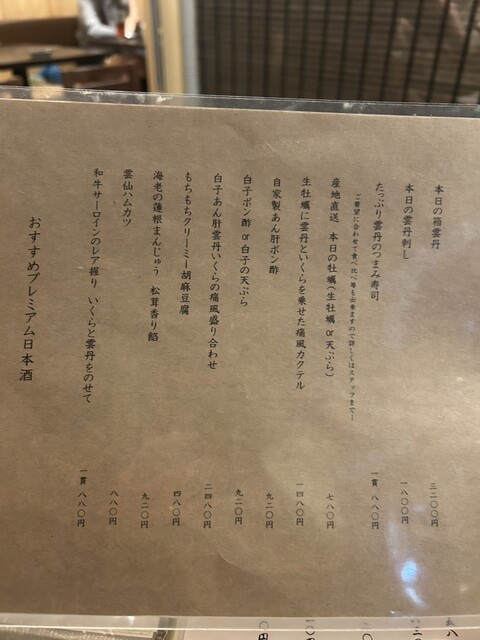 本日の箱雲丹 三二〇〇円
本日の雲丹刺し 一八〇〇円
たっぷり雲丹のつまみ寿司 一貫 八八〇円
ご要望に合わせて食べ比べ等も出来ますので詳しくはスタッフまで！
産地直送 本日の牡蠣（生牡蠣 or 天ぷら） 七八〇円
生牡蠣に雲丹といくらを乗せた痛風カクテル 一四八〇円
自家製あん肝ポン酢 九二〇円
白子ポン酢 or 白子の天ぷら 九二〇円
白子あん肝雲丹いくらの痛風盛り合わせ 二四八〇円
もちもちクリーミー胡麻豆腐 四八〇円
海老の蓮根まんじゅう 松茸香り餡 九二〇円
雲仙ハムカツ 八八〇円
和牛サーロインのレア握り いくらと雲丹をのせて 一貫 八八〇円
おすすめプレミアム日本酒